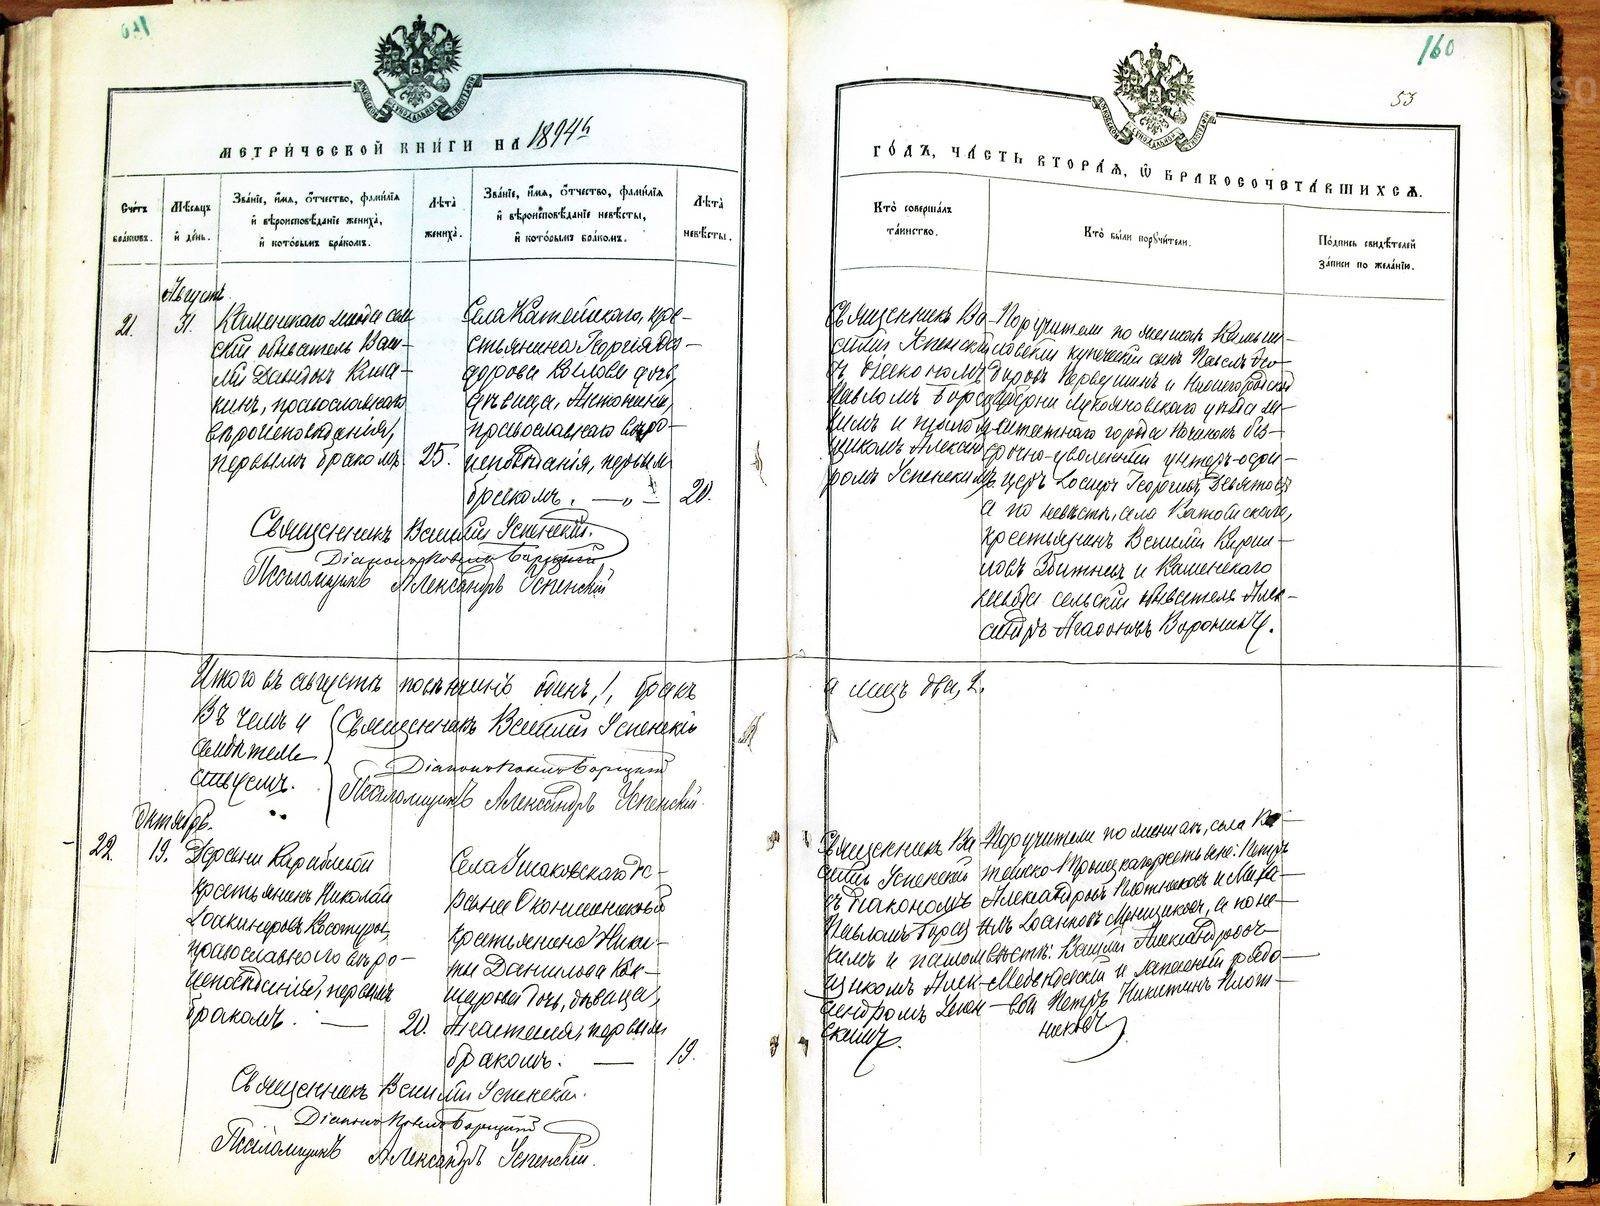 160
53
МЕТРИ́ЧЕСКОЙ КНИ́ГИ НА 1894 й
ГО́ДЪ, ЧА́СТЬ ВТОРА́Я, Ѡ БРАКОСОЧЕТА́ВШИХСЯ.
Сче́тъ бра́ковъ.
Мѣ́сяцъ и де́нь.
Зва́нїе, и́мя, о́тчество, фами́лїя
и вѣроисповѣ́данїе жениха̀,
и кото́рымъ бра́комъ.
Лѣ́та
жениха̀.
Зва́нїе, и́мя, о́тчество, фами́лїя
и вѣроисповѣ́данїе невѣ́сты,
и кото́рымъ бра́комъ.
Лѣ́та
невѣ́сты.
Кто̀ соверша́лъ
та́инство.
Кто̀ бы́ли поручи́тели.
По́дпись свидѣ́телей
за́писи по жела́нїю.
Августъ
21.
31.
Каменскаго завода сель
скій обыватель Васи-
лій Давидовъ
православнаго
вѣроисповѣданія,
первымъ бракомъ
25.
Села Катайскаго, кре-
стьянина Георгія Ѳео-
дорова Бѣлова дочь
дѣвица, Антонина,
православнаго вѣро-
исповѣданія, первымъ
бракомъ. — „ —
20.
Священникъ Ва
силій Успенскій
съ діакономъ
Павломъ Бориц
кимъ и псалом
щикомъ Алексан
ромъ Успенскимъ
Поручители по женихѣ: Камыш-
ловскій купеческій сынъ Павелъ Ѳео-
доровъ Первушинъ и Нижегородской
губерніи Лукояновскаго уѣзда за-
штатнаго города Починокъ без-
срочно-уволенный унтеръ-офи-
церъ Іосифъ Георгіевъ Девятовъ
а по невѣстѣ, села Катайскаго,
крестьянинъ Василій Кирил-
ловъ и Каменскаго
завода сельскій обыватель Алек-
сандръ Агаѳоновъ Воронинъ.
Священникъ Василій Успенскій.
Діаконъ Павелъ Борицкій
Псаломщикъ Александръ Успенскій
Итого въ августѣ повѣнчанъ одинъ, 1, бракъ
а лицъ два, 2.
Въ чемъ и
свидѣтель
ствуемъ.
Священникъ Василій Успенскій
Діаконъ Павелъ Борицкій
Псаломщикъ Александръ Успенскій.
Октябрь.
22.
19.
Деревни
крестьянинъ Николай
православнаго вѣро-
исповѣданія, первымъ
бракомъ. —
20.
Села Ушаковскаго де-
ревни
крестьянина Ники-
ты Данилова
дочь, дѣвица,
Анастасія, первымъ
бракомъ. —
19.
Священникъ Ва
силій Успенскій
съ діакономъ
Павломъ Бориц
кимъ и псалом
щикомъ Алек-
сандромъ Успен
скимъ.
Поручители по женихѣ, села Ка-
крестьяне: Петръ
Александровъ Плотниковъ и
Іоанновъ а по не-
вѣстѣ: Василій Александровъ
и запасный рядо-
вой Петръ Никитинъ Плот-
никовъ.
Священникъ Василій Успенскій.
Діаконъ Павелъ Борицкій
Псаломщикъ Александръ Успенскій.